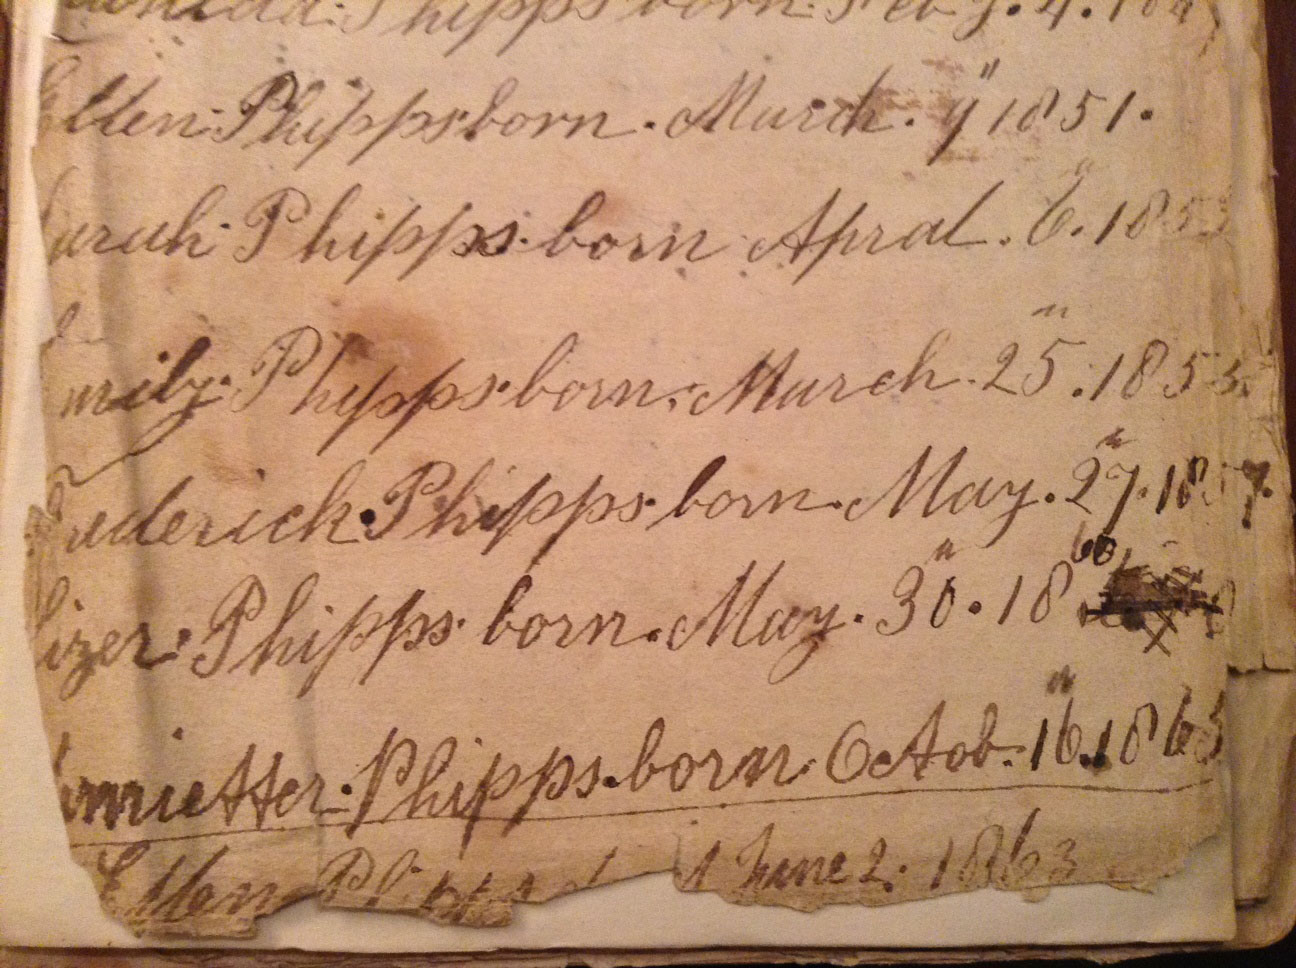 Phipps born Feb y. 4. 184
Ellen Phipps born. March. 9" 1851.
Sarah Phipps born Apral. 6. 185
Emily Phipps born. March. 25". 1855.
Frederick Phipps born. May. 27. 1857.
lizer Phipps born. May. 30". 1860
enrietter Phipps born. Octob. 16. 186
Ellen Phipps d June 2. 1863